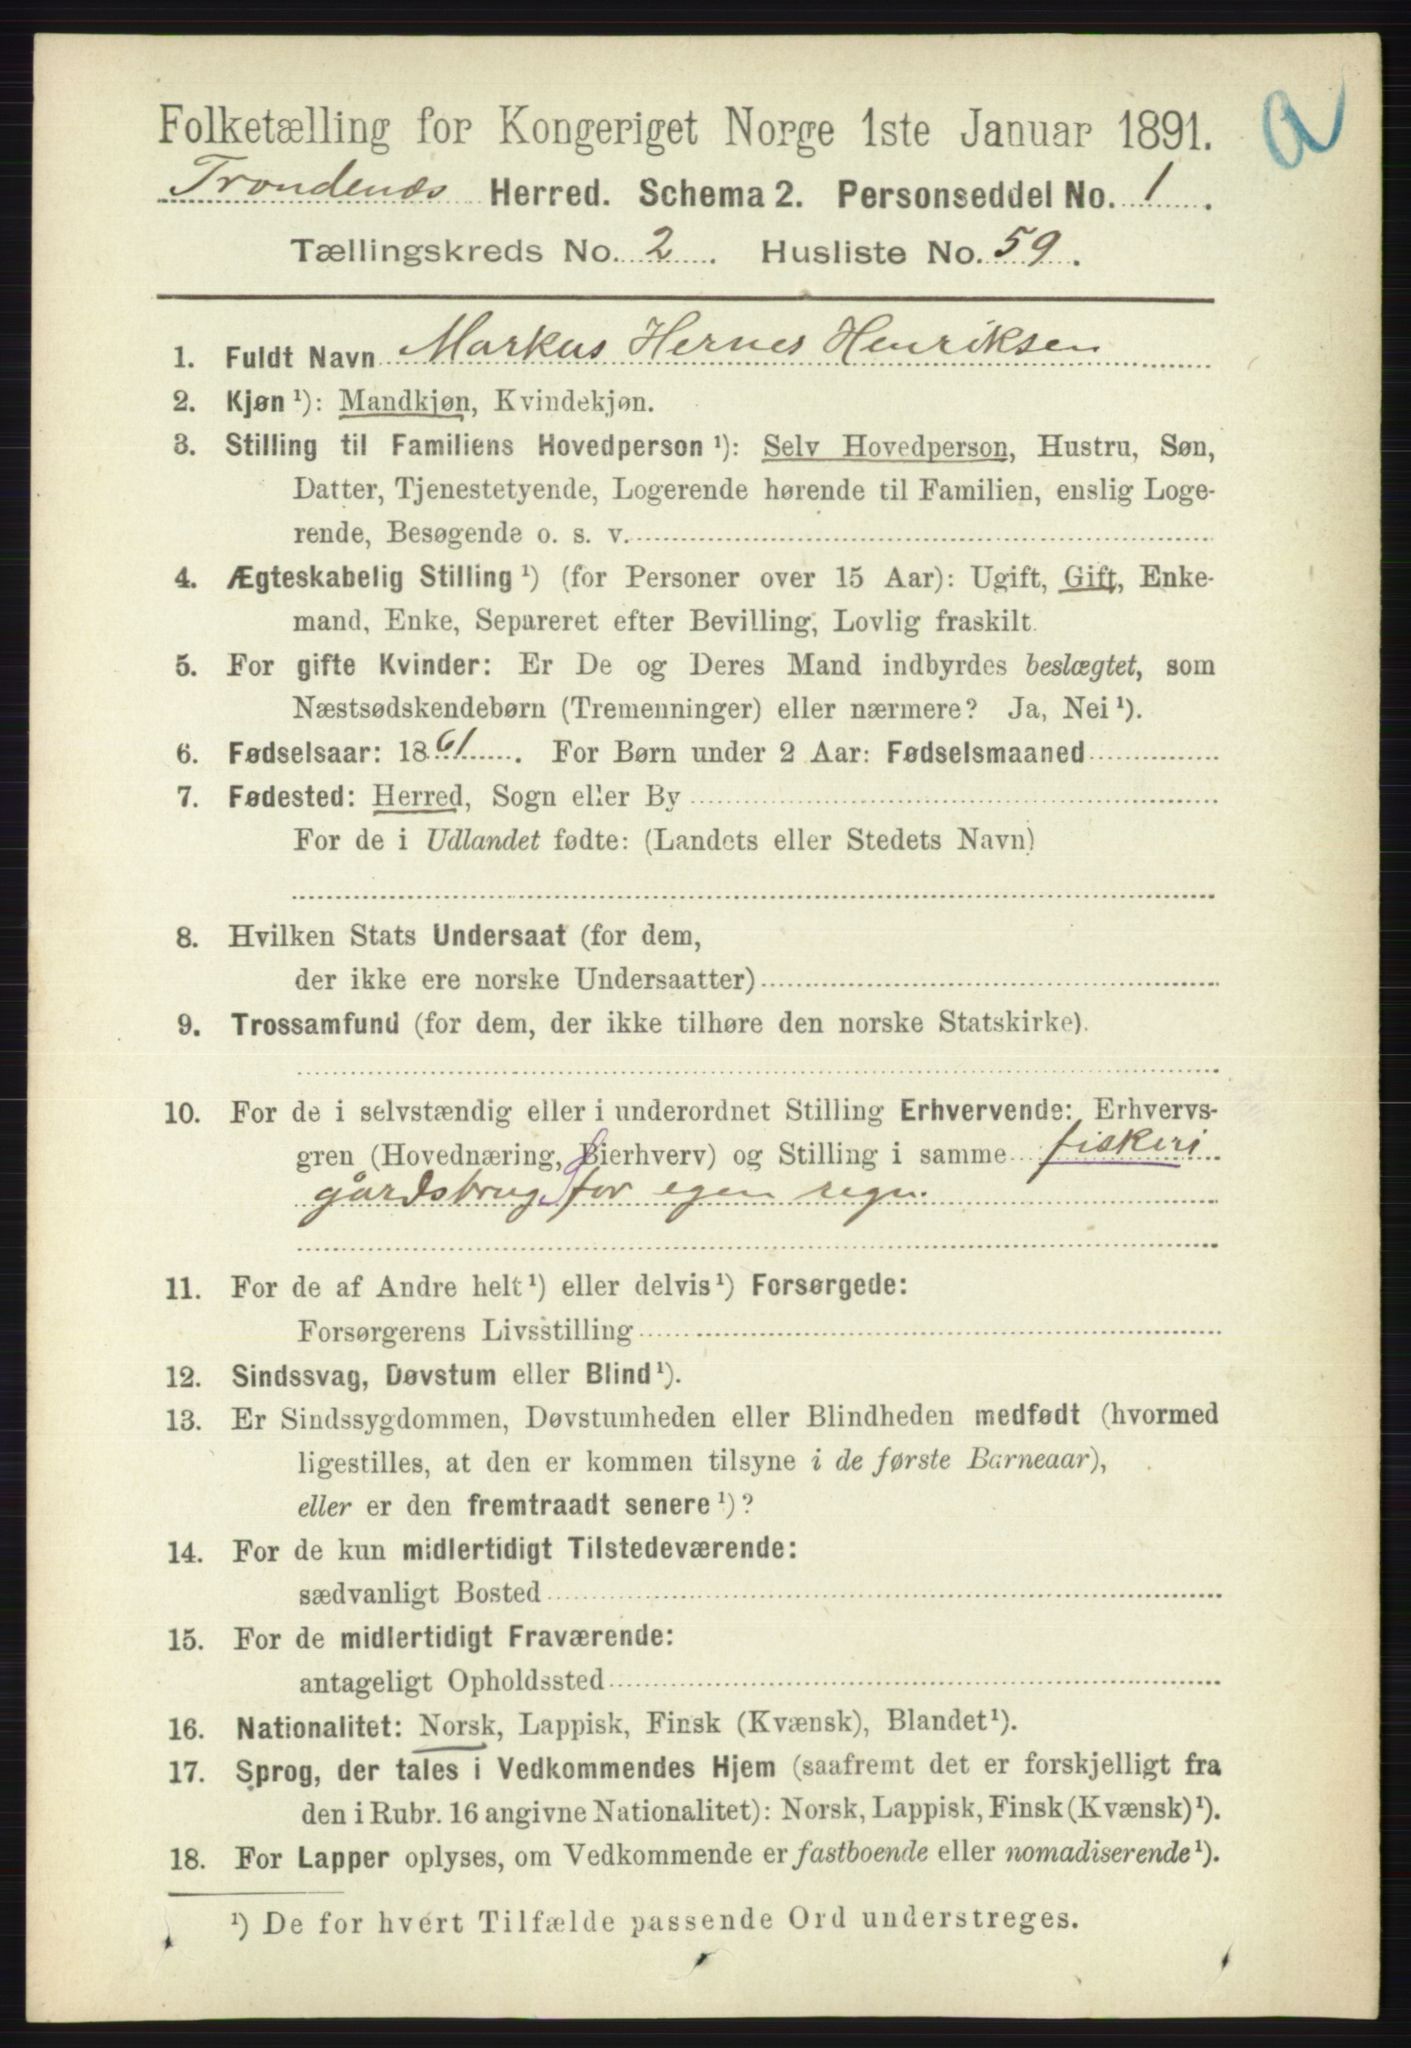 a
Folketælling for Kongeriget Norge 1ste Januar 1891.
Trondenæs Herred. Schema 2. Personseddel No. 1.
Tællingskreds No. 2. Husliste No. 59.
1. Fuldt Navn Markus Hernes Henriksen
2. Kjøn ¹): Mandkjøn, Kvindekjøn.
3. Stilling til Familiens Hovedperson ¹): Selv Hovedperson, Hustru, Søn,
Datter, Tjenestetyende, Logerende hørende til Familien, enslig Loge-
rende, Besøgende o. s. v.
4. Ægteskabelig Stilling ¹) (for Personer over 15 Aar): Ugift, Gift, Enke-
mand, Enke, Separeret efter Bevilling, Lovlig fraskilt.
5. For gifte Kvinder: Er De og Deres Mand indbyrdes beslægtet, som
Næstsødskendebørn (Tremenninger) eller nærmere? Ja, Nei ¹).
6. Fødselsaar: 1861. For Børn under 2 Aar: Fødselsmaaned
7. Fødested: Herred, Sogn eller By
For de i Udlandet fødte: (Landets eller Stedets Navn)
8. Hvilken Stats Undersaat (for dem,
der ikke ere norske Undersaatter)
9. Trossamfund (for dem, der ikke tilhøre den norske Statskirke).
10. For de i selvstændig eller i underordnet Stilling Erhvervende: Erhvervs-
gren (Hovednæring, Bierhverv) og Stilling i samme fiskeri
gårdsbrug for egen regn.
11. For de af Andre helt ¹) eller delvis ¹) Forsørgede:
Forsørgerens Livsstilling
12. Sindssvag, Døvstum eller Blind ¹).
13. Er Sindssygdommen, Døvstumheden eller Blindheden medfødt (hvormed
ligestilles, at den er kommen tilsyne i de første Barneaar),
eller er den fremtraadt senere ¹)?
14. For de kun midlertidigt Tilstedeværende:
sædvanligt Bosted
15. For de midlertidigt Fraværende:
antageligt Opholdssted
16. Nationalitet: Norsk, Lappisk, Finsk (Kvænsk), Blandet ¹).
17. Sprog, der tales i Vedkommendes Hjem (saafremt det er forskjelligt fra
den i Rubr. 16 angivne Nationalitet): Norsk, Lappisk, Finsk (Kvænsk) ¹).
18. For Lapper oplyses, om Vedkommende er fastboende eller nomadiserende ¹).
¹) De for hvert Tilfælde passende Ord understreges.